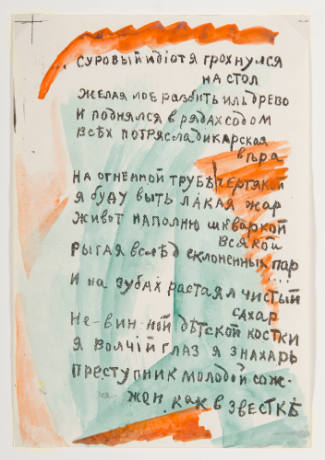 суровый идiот я грохнулся
на стол
желая лоб разбить иль древо
и поднялся в рядах содом
всѣх потрясла дикарская
вѣра
на огненной трубѣ чертякой
я буду выть лакая жар
живот наполню шкваркой
всякой
рыгая вслѣд склоненных пар
и на зубах растаял чистый
сахар
не-винной дѣтской костки
я волчiй глаз я знахарь
преступник молодой сож-
жен как в звесткѣ